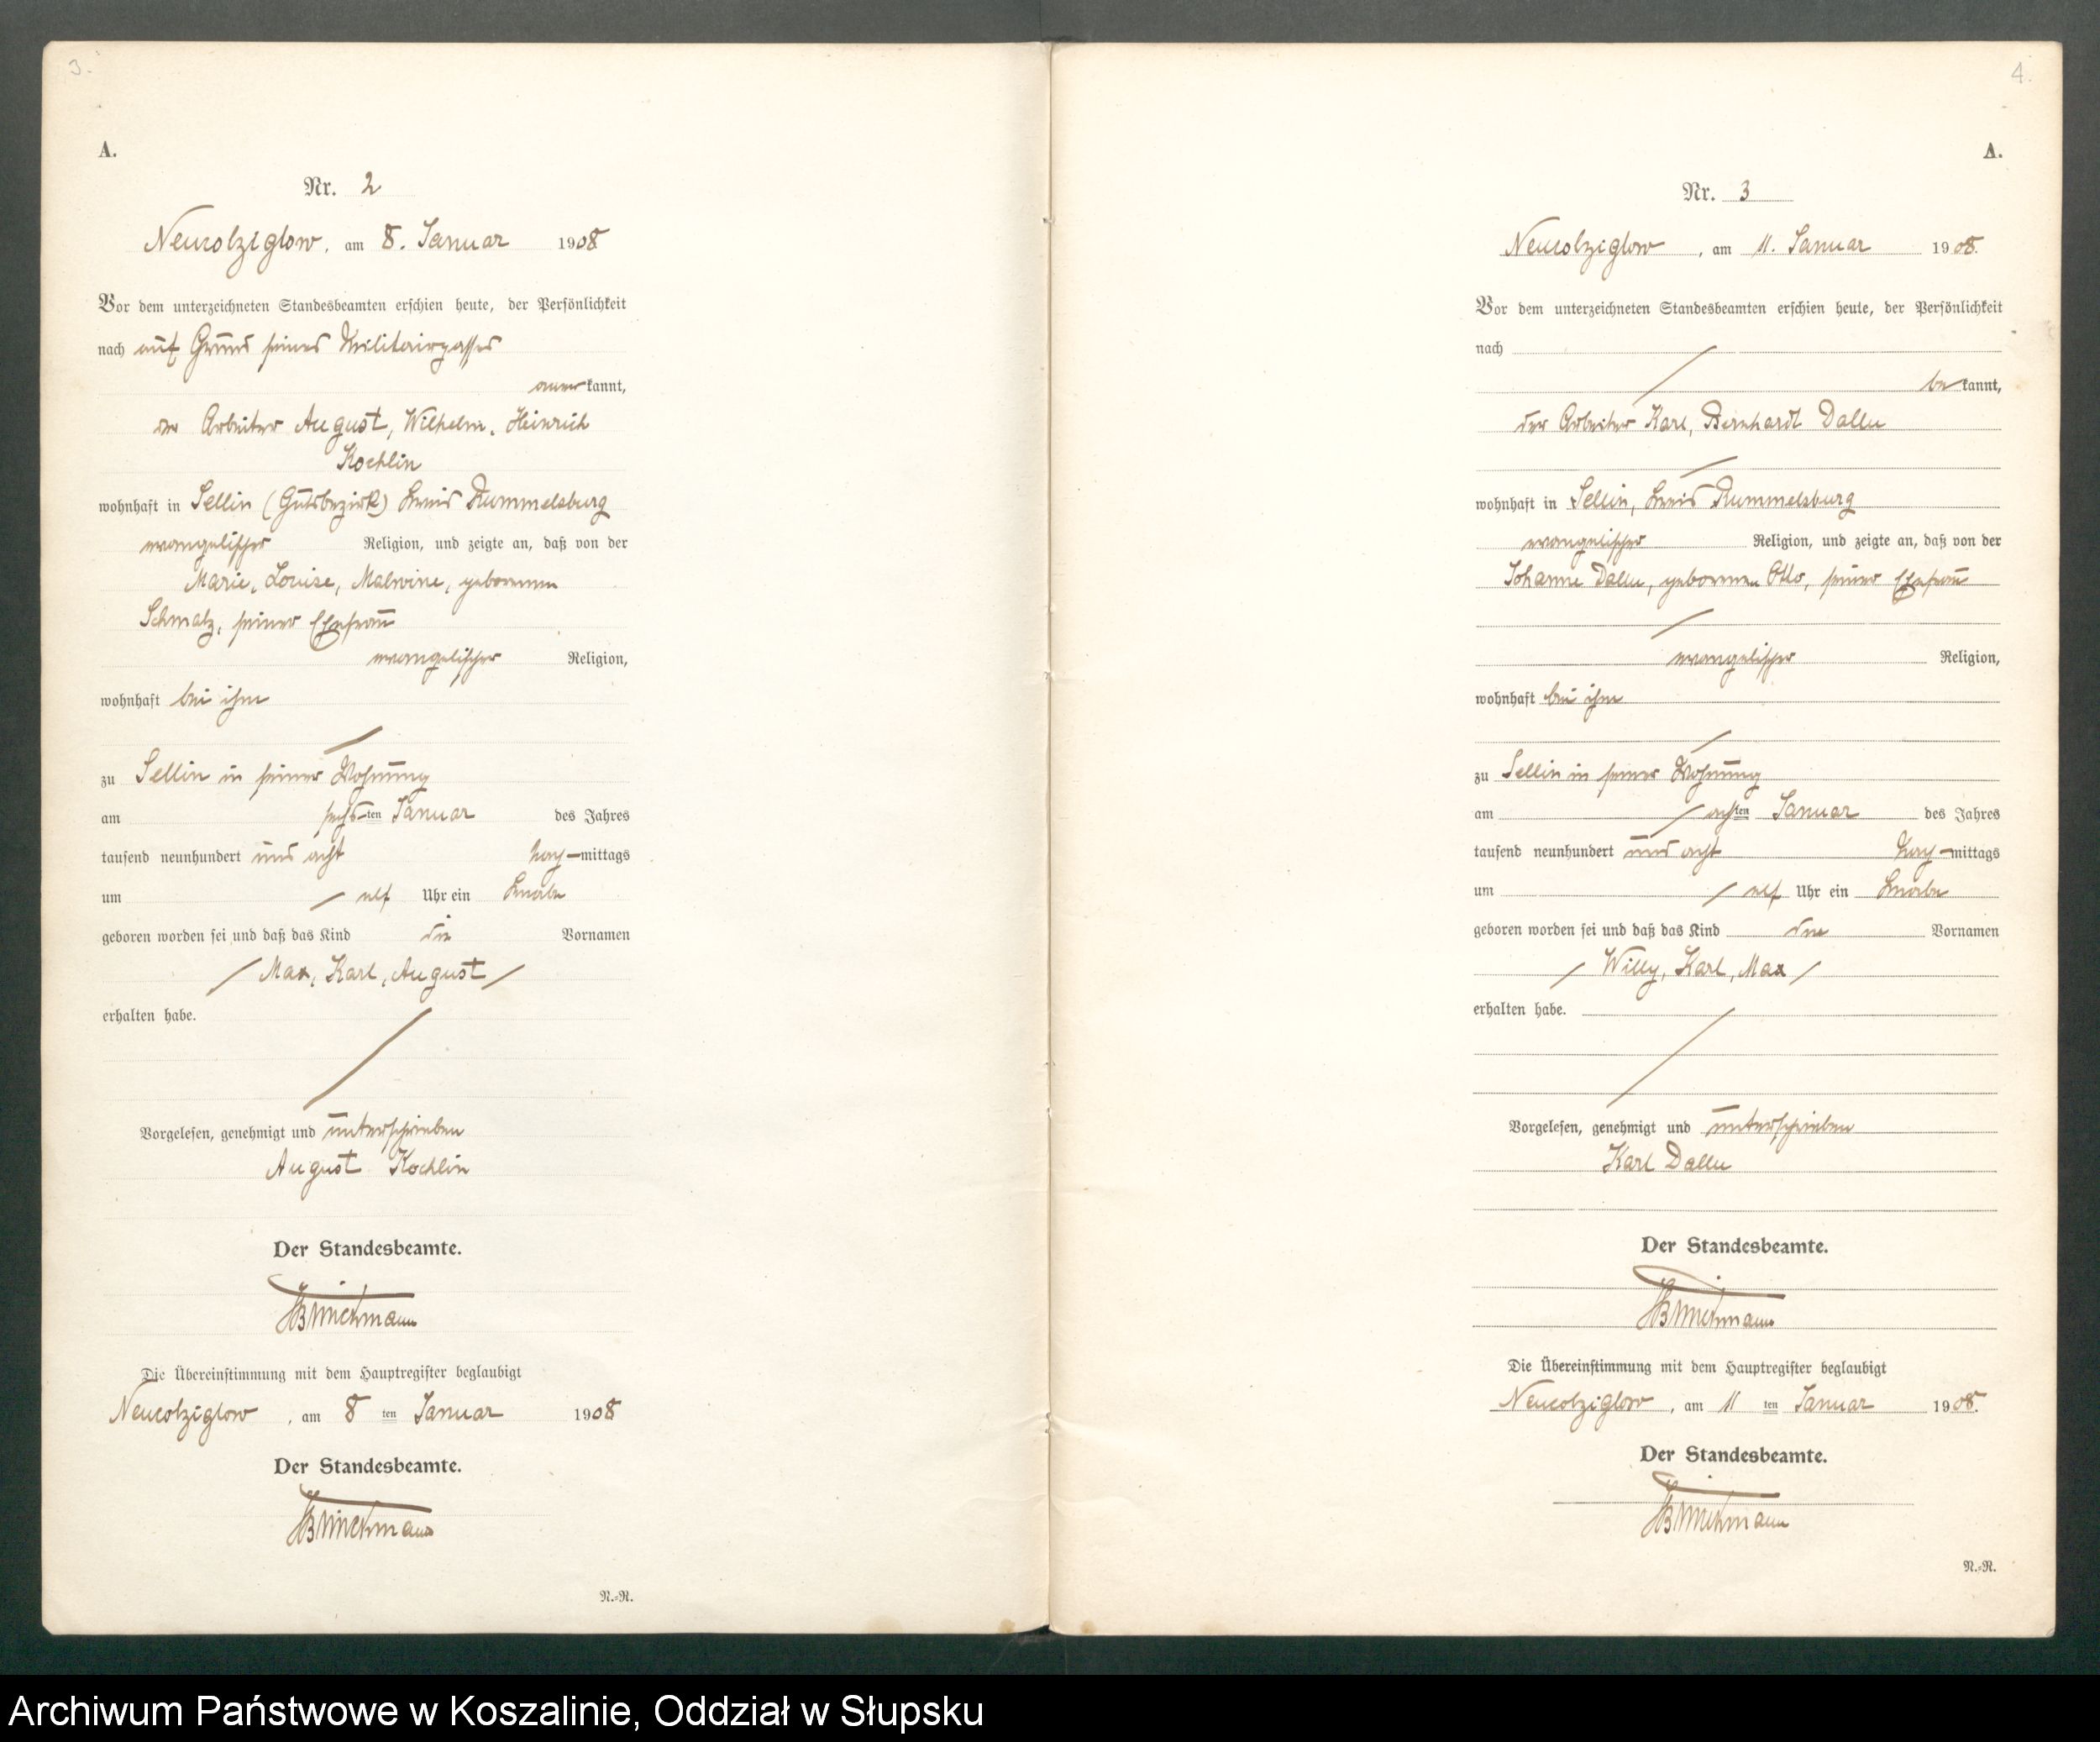 3.
A.
Nr. 2
Neucolziglow, am 8. Januar 1908
Vor dem unterzeichneten Standesbeamten erschien heute, der Persönlichkeit
nach auf Grund seines Militairpasses
anerkannt,
der Arbeiter August, Wilhelm, Heinrich
Kochlin
wohnhaft in Sellin (Gutsbezirk) Kreis Rummelsburg
evangelischer Religion, und zeigte an, daß von der
Marie, Louise, Malwine, geborenen
Schmalz, seiner Ehefrau
evangelischer Religion,
wohnhaft bei ihm
zu Sellin in seiner Wohnung
am sechsten Januar des Jahres
tausend neunhundert und acht Nach-mittags
um elf Uhr ein Knabe
geboren worden sei und daß das Kind die Vornamen
Max, Karl, August
erhalten habe.
Vorgelesen, genehmigt und unterschrieben
August Kochlin
Der Standesbeamte.
Brinckmann
Die Übereinstimmung mit dem Hauptregister beglaubigt
Neucolziglow, am 8ten Januar 1908
Der Standesbeamte.
Brinckmann
N.-R.
4.
A.
Nr. 3
Neucolziglow, am 11. Januar 1908.
Vor dem unterzeichneten Standesbeamten erschien heute, der Persönlichkeit
nach
bekannt,
der Arbeiter Karl, Bernhardt Dallu
wohnhaft in Sellin, Kreis Rummelsburg
evangelischer Religion, und zeigte an, daß von der
Johanne Dallu, geborenen Otto, seiner Ehefrau
evangelischer Religion,
wohnhaft bei ihm
zu Sellin in seiner Wohnung
am achten Januar des Jahres
tausend neunhundert und acht Nach-mittags
um elf Uhr ein Knabe
geboren worden sei und daß das Kind die Vornamen
Willy, Karl, Max
erhalten habe.
Vorgelesen, genehmigt und unterschrieben
Karl Dallu
Der Standesbeamte.
Brinckmann
Die Übereinstimmung mit dem Hauptregister beglaubigt
Neucolziglow, am 11ten Januar 1908.
Der Standesbeamte.
Brinckmann
N.-R.
Archiwum Państwowe w Koszalinie, Oddział w Słupsku